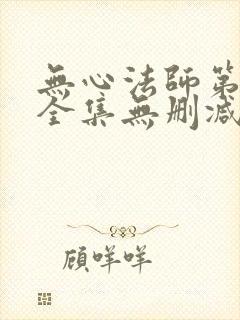 無心法師第
全集無刪减
顧咩咩